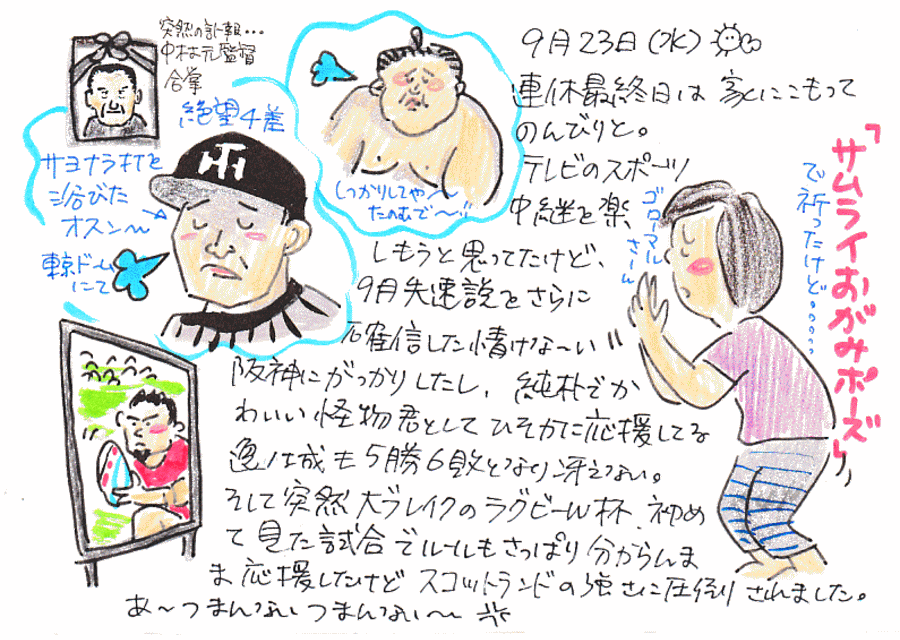 突然の訃報…
中村元監督
合掌
絶望4差
サヨナラ打を
浴びた
オスン〜
東京ドーム
にて
しっかりしてやン〜
たのむで〜!!
9月23日(水)
連休最終日は 家にこもって
のんびりと。
テレビのスポーツ
中継を楽
しもうと思ってたけど、
9月失速説をさらに
確信した情けな〜い
阪神にがっかりしたし、純朴でか
わいい怪物君としてひそかに応援してる
逸ノ城も5勝6敗となり冴えない。
そして突然大ブレイクのラグビーW杯、初め
て見た試合でルールもさっぱり分からんま
ま応援したけどスコットランドの強さに圧倒されました。
あ〜つまんないつまんない〜
ゴローマル
さーん
「サムライおがみポーズ」
で祈ったけど。。。。。